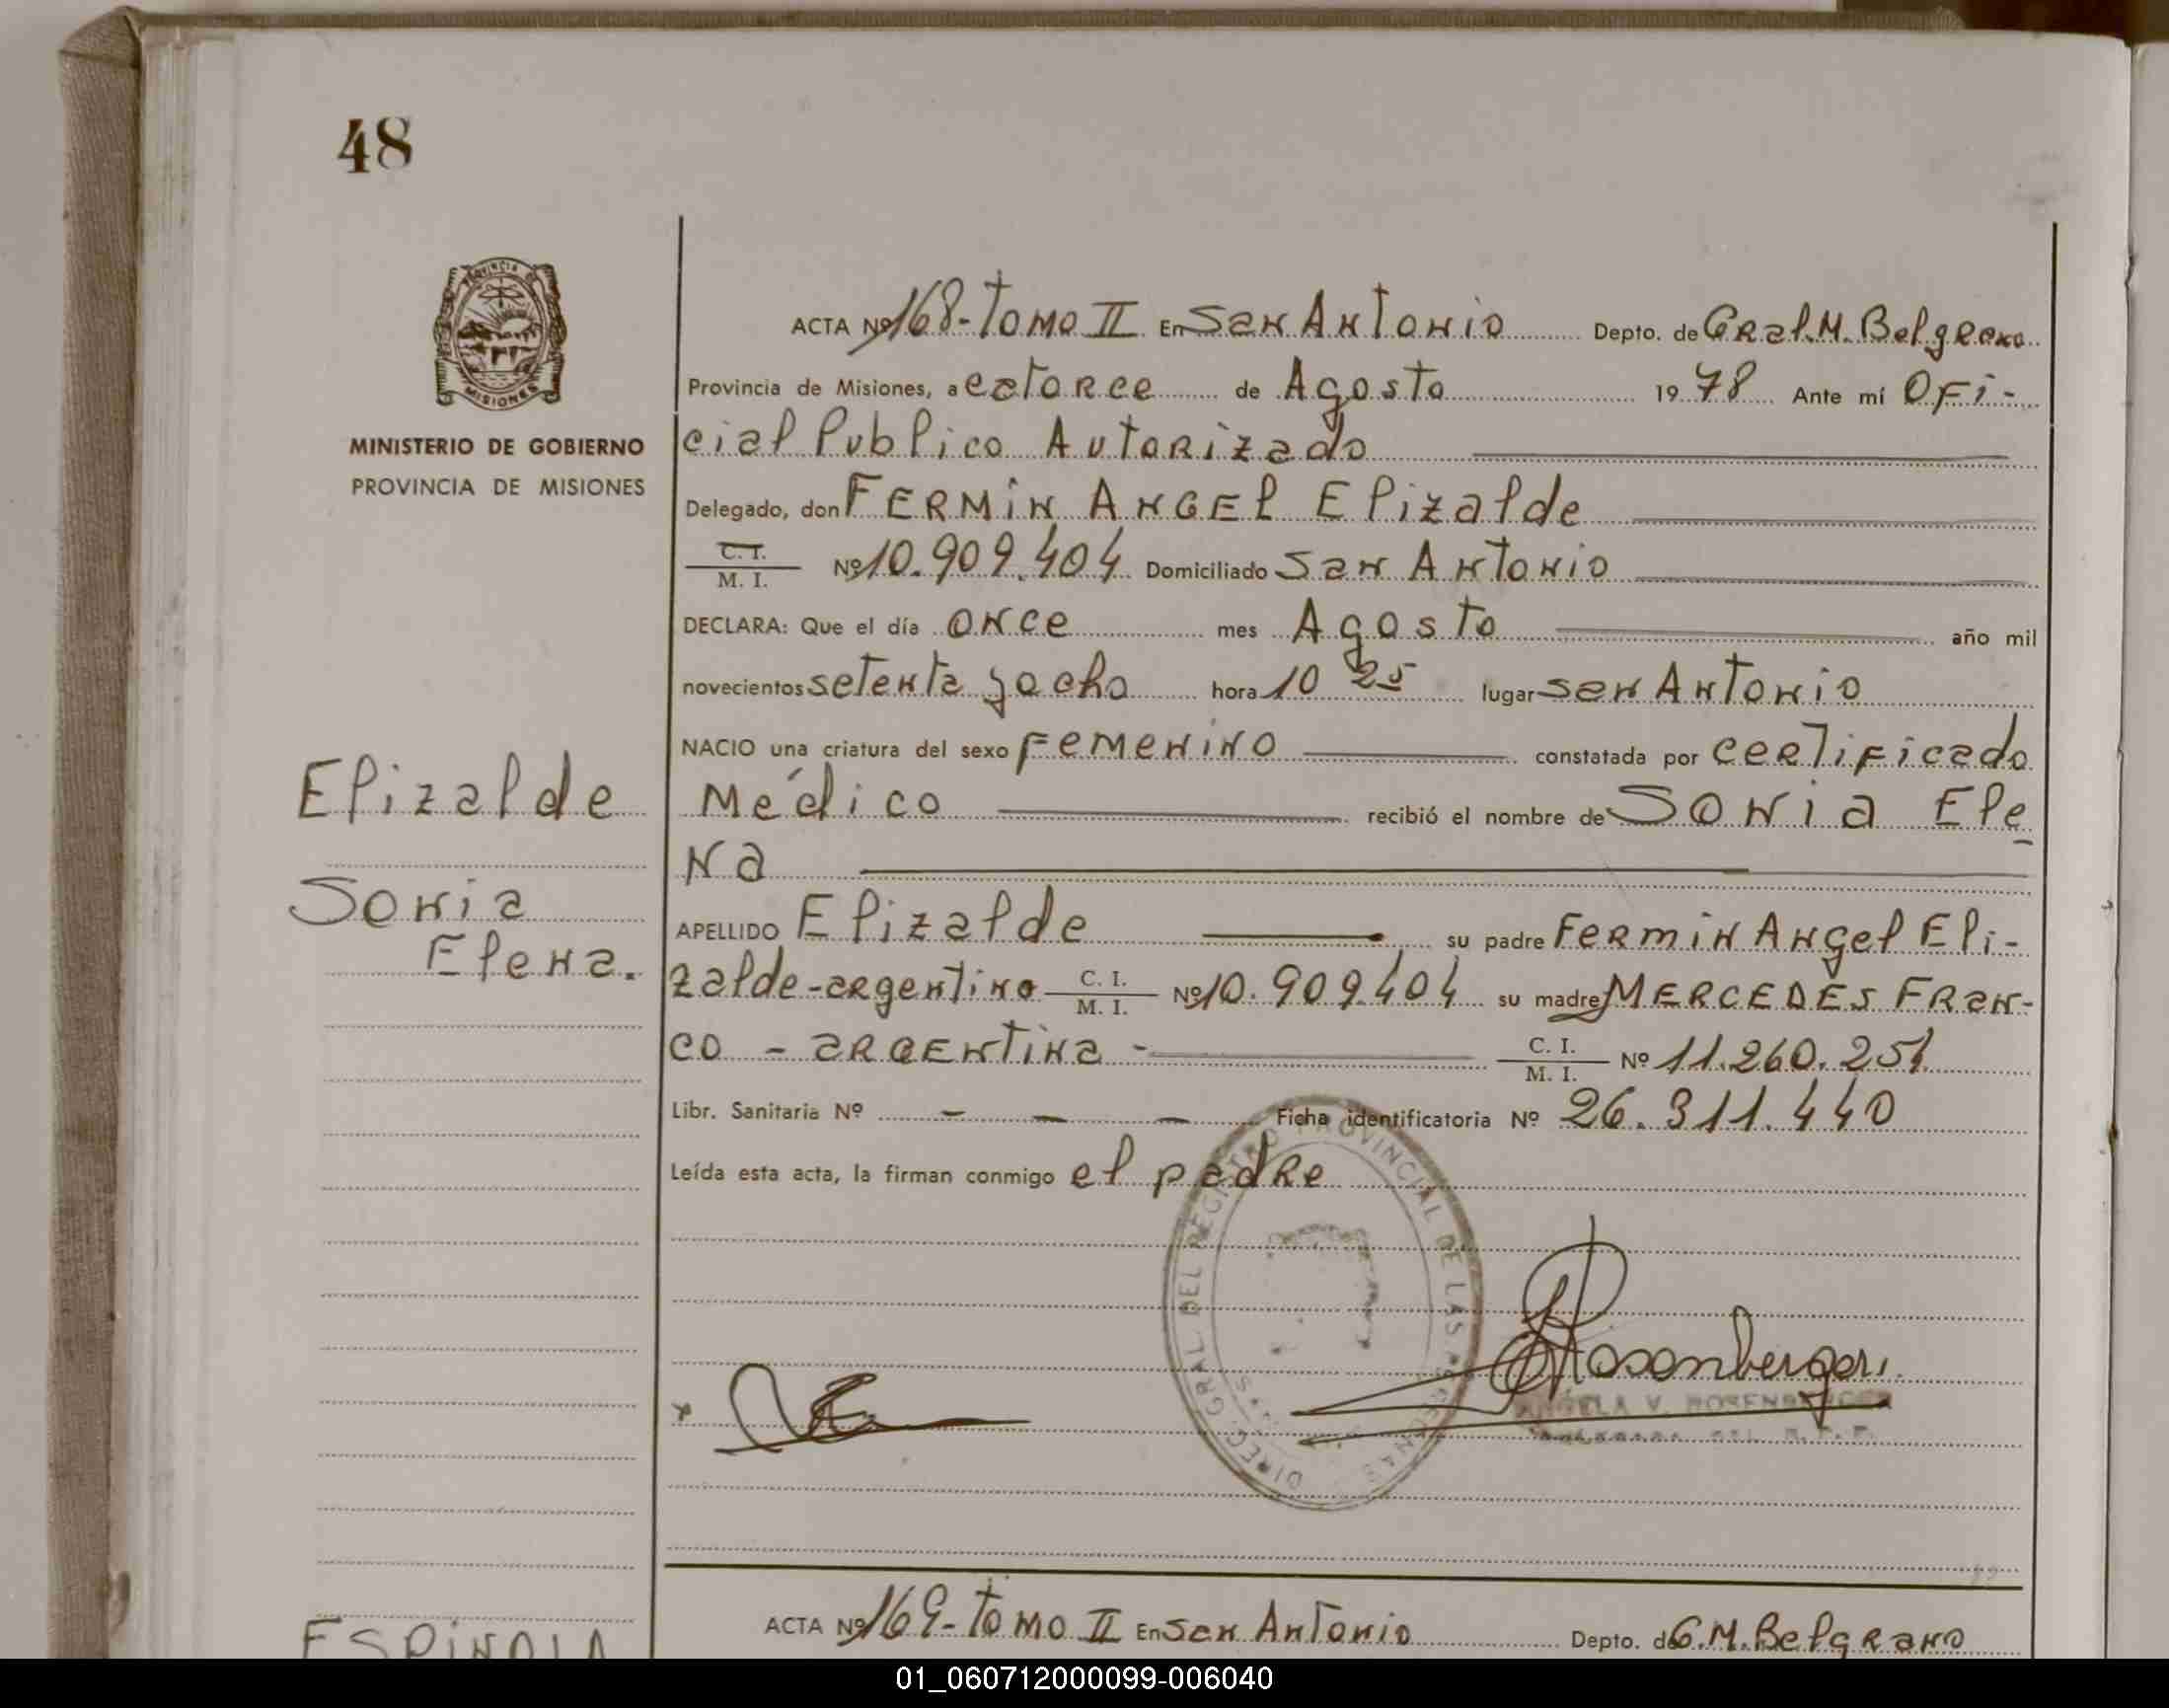 48
PROVINCIA DE
MISIONES
MINISTERIO DE GOBIERNO
PROVINCIA DE MISIONES
Elizalde
Sonia
Elena.
ACTA Nº 168-Tomo II En San Antonio Depto. de Gral. M. Belgrano
Provincia de Misiones, a catorce de Agosto 19 78 Ante mí Ofi-
cial Publico Autorizado
Delegado, don FERMIN ANGEL Elizalde
C. I.
M. I. Nº 10.909.404 Domiciliado San Antonio
DECLARA: Que el día once mes Agosto año mil
novecientos setenta y ocho hora 10 25 lugar San Antonio
NACIO una criatura del sexo Femenino constatada por certificado
Médico recibió el nombre de Sonia Ele
na
APELLIDO Elizalde su padre Fermin Angel Eli-
zalde-argentino C. I. M. I. Nº 10.909.404 su madre MERCEDES FRan-
co - argentina - C. I. M. I. Nº 11.260.251
Libr. Sanitaria Nº - - - Ficha identificatoria Nº 26.311.440
Leída esta acta, la firman conmigo el padre
DIREC. GRAL DEL REGISTRO PROVINCIAL DE LAS PERSONAS
Rosenberger
ANGELA V. ROSENBERGER
ACTA Nº 169-Tomo II En San Antonio Depto. de G.M. Belgrano
ESPINDOLA
01_060712000099-006040